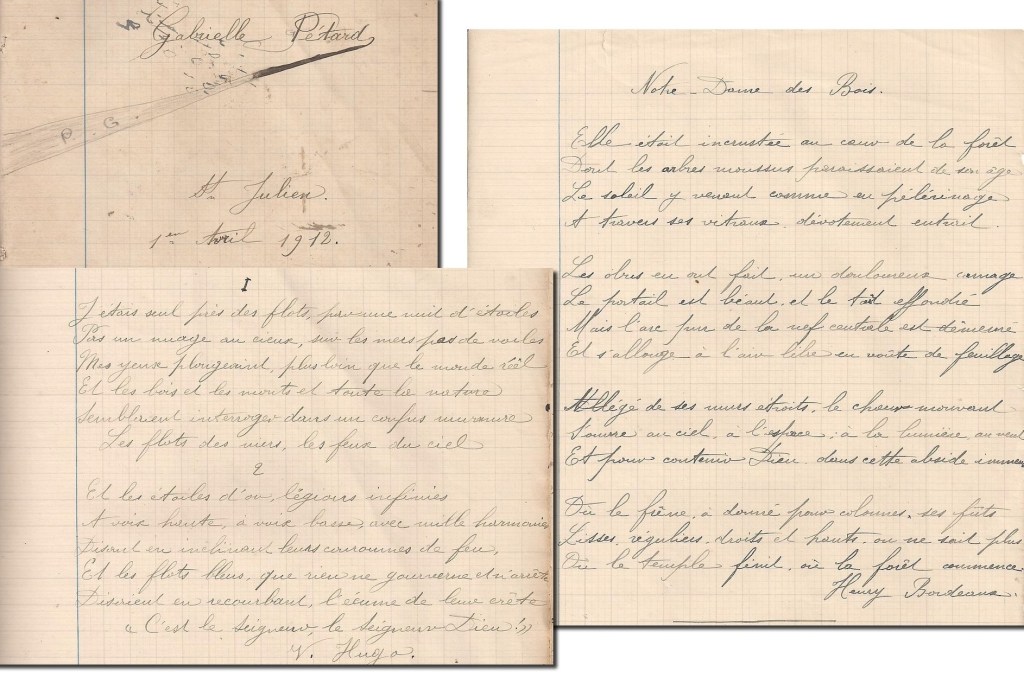 Gabrielle Pétard
P. G.
St Julien.
1er Avril 1912.
I
J'étais seul près des flots, par une nuit d'étoiles
Pas un nuage au cieux, sur les mers pas de voiles
Mes yeux plongeaint, plus loin que le monde réel
Et les bois et les monts et toute la nature
Semblaient interroger dans un confus murmure
Les flots des mers, les feux du ciel
2
Et les étoiles d'or, légions infinies
A voix haute, à voix basse, avec mille harmonies
Disant en inclinant leurs couronnes de feu,
Et les flots bleus, que rien ne gouverne et n'arrête
Disaient en recourbant, l'écume de leur crête
« C'est le seigneur, le seigneur Dieu ! »
V. Hugo.
Notre-Dame des Bois.
Elle était incrustée au cœur de la forêt
Dont les arbres moussus paraissaient de son âge
Le soleil y venant comme en pèlérinage
A travers ses vitraux, dévotement entrait.
Les obus en ont fait, un douloureux carnage
Le portail est béant, et le toit effondré
Mais l'arc pur de la nef centrale est démeuré
Et s'allonge à l'air libre en voûte de feuillage
Allégé de ses murs étroits, le chœur mouvant
S'ouvre au ciel, à l'espace, à la lumière, au vent
Et pour contenir Dieu, dans cette abside immen
Où le frêne, a donné pour colonnes, ses fûts
Lisses, réguliers, droits et hauts, on ne sait plus
Où le temple finit, où la forêt commence
Henry Bordeaux.